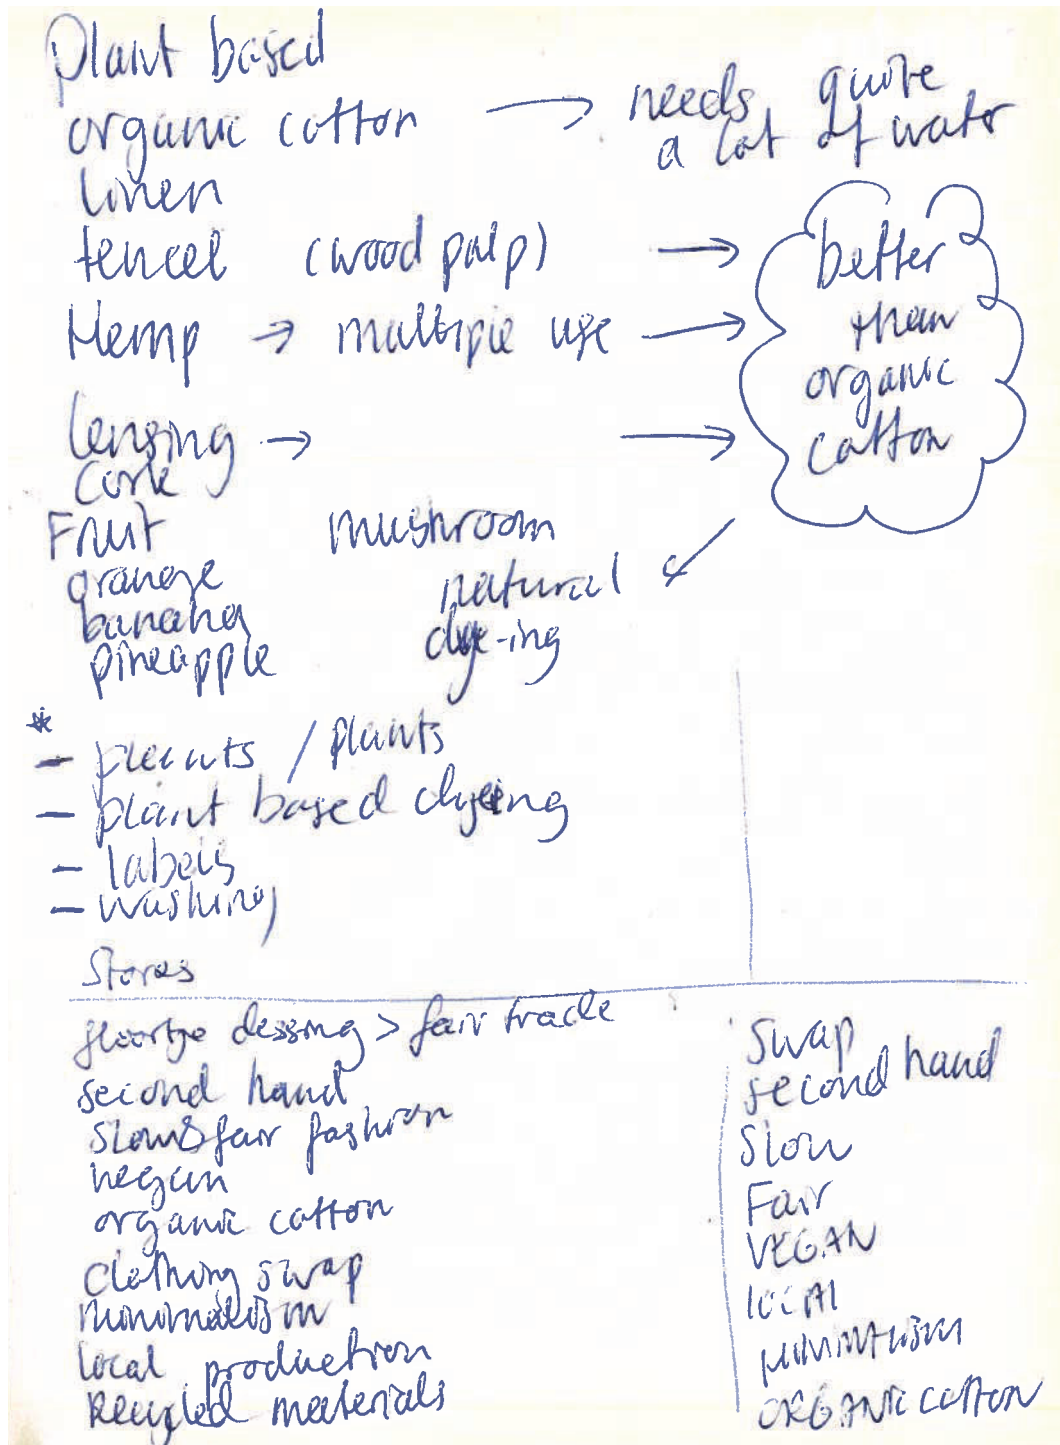 Plant based
organic cotton → needs quite
a lot of water
linen
tencel (wood pulp) → better
than
organic
cotton
Hemp → multiple use →
lensing → →
Cork
Fruit mushroom
orange natural
banana dye-ing
pineapple
*
- / plants
- plant based dyeing
- labels
- washing
Stores
dessing > fair trade
second hand
slow & fair fashion
vegan
organic cotton
clothing swap
minimalism
local production
Recycled materials
swap
second hand
Slow
Fair
VEGAN
locAl
ORGANIC cotton